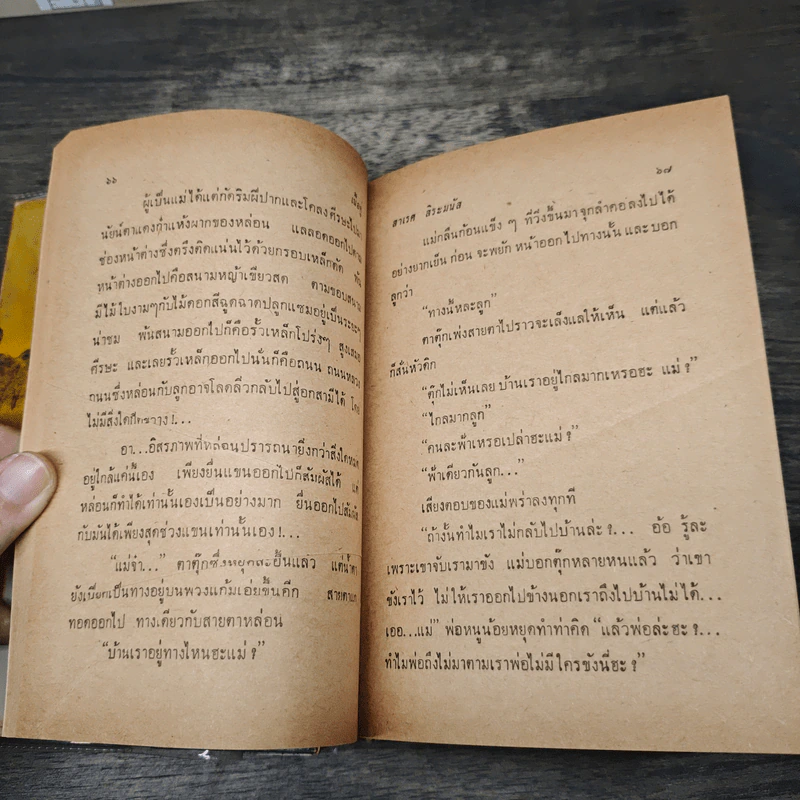 ๖๖
ผู้เป็นแม่ได้แต่กัดริมฝีปากและโคลงศีรษะไปมา
นัยน์ตาแดงก่ำแห้งผากของหล่อน แลลอดออกไปตาม
ช่องหน้าต่างซึ่งตรึงติดแน่นไว้ด้วยกรอบเหล็กดัด
หน้าต่างออกไปคือสนามหญ้าเขียวสด ตามขอบสนาม
มีไม้ใบงามๆกับไม้ดอกสีฉูดฉาดปลูกแซมอยู่เป็นระยะๆ
น่าชม พ้นสนามออกไปก็คือรั้วเหล็กโปร่งๆ สูงเสมอ
ศีรษะ และเลยรั้วเหล็กออกไปนั่นก็คือถนน ถนนหลวง
ถนนซึ่งหล่อนกับลูกอาจโลดลิ่วกลับไปสู่อกสามีได้ โดย
ไม่มีสิ่งใดกีดขวาง !...
อา...อิสรภาพที่หล่อนปรารถนายิ่งกว่าสิ่งใดหมด
อยู่ใกล้แค่นี้เอง เพียงยื่นแขนออกไปก็สัมผัสได้ แต่
หล่อนก็ทำได้เท่านั้นเองเป็นอย่างมาก ยื่นออกไปสัมผัส
กับมันได้เพียงสุดช่วงแขนเท่านั้นเอง !...
“แม่จ๋า...” ตาตุ๊กซึ่งหยุดสะอื้นแล้ว แต่น้ำตา
ยังเปียกเป็นทางอยู่บนพวงแก้มเอ่ยขึ้นอีก สายตาแก
ทอดออกไป ทางเดียวกับสายตาหล่อน
“บ้านเราอยู่ทางไหนฮะแม่ ?”
สาเรศ สิระมนัส
๖๗
แม่กลืนก้อนแข็ง ๆ ที่วิ่งขึ้นมาจุกลำคอลงไปได้
อย่างยากเย็น ก่อน จะพยัก หน้าออก ไปทางนั้น และ บอก
ลูกว่า
“ทางนี้หละลูก”
ตาตุ๊กเพ่งสายตาไปราวจะเล็งแลให้เห็น แต่แล้ว
ก็สั่นหัวดิก
“ตุ๊กไม่เห็นเลย บ้านเราอยู่ไกลมากเหรอฮะ แม่ ?”
“ไกลมากลูก”
“คนละฟ้าเหรอเปล่าฮะแม่ ?”
“ฟ้าเดียวกันลูก...”
เสียงตอบของแม่พร่าลงทุกที
“ถ้างั้นทำไมเราไม่กลับไปบ้านล่ะ ?... อ้อ รู้ละ
เพราะเขาจับเรามาขัง แม่บอกตุ๊กหลายหนแล้ว ว่าเขา
ขังเราไว้ ไม่ให้เราออกไปข้างนอกเราถึงไปบ้านไม่ได้...
เออ...แม่” พ่อหนูน้อยหยุดทำท่าคิด “แล้วพ่อล่ะฮะ ?...
ทำไมพ่อถึงไม่มาตามเราพ่อไม่มีใครขังนี่ฮะ ?”